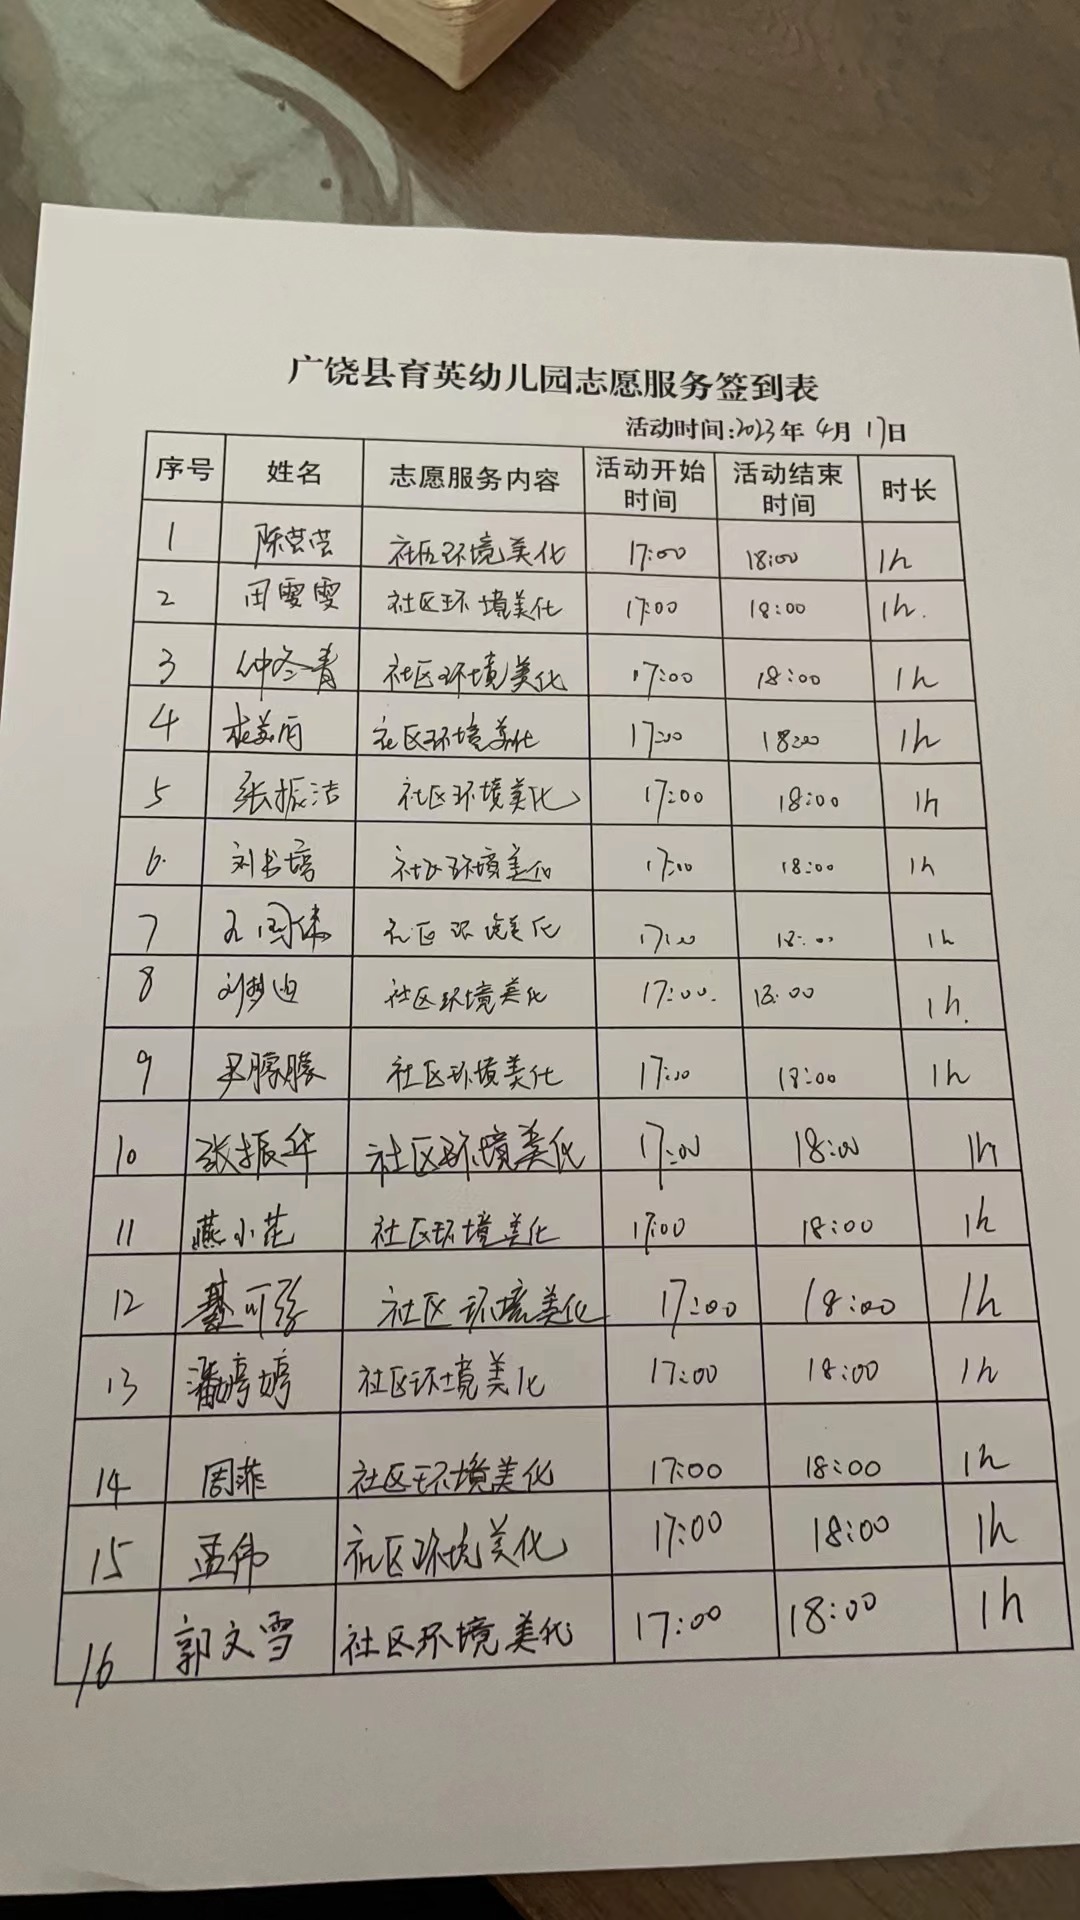 广饶县育英幼儿园志愿服务签到表
活动时间:2023年 4月 17日
序号 姓名 志愿服务内容 活动开始时间 活动结束时间 时长
1 陈芸芸 社区环境美化 17:00 18:00 1h
2 田雯雯 社区环境美化 17:00 18:00 1h.
3 仲冬青 社区环境美化 17:00 18:00 1h
4 社区环境美化 17:00 18:00 1h
5 张振洁 社区环境美化 17:00 18:00 1h
6. 刘书培 社区环境美化 17:00 18:00 1h
7 社区环境美化 17:00 18:00 1h
8 刘梦迪 社区环境美化 17:00. 18:00 1h.
9 尹朦朦 社区环境美化 17:00 18:00 1h
10 张振华 社区环境美化 17:00 18:00 1h
11 燕小花 社区环境美化 17:00 18:00 1h
12 社区环境美化 17:00 18:00 1h
13 潘婷婷 社区环境美化 17:00 18:00 1h
14 周菲 社区环境美化 17:00 18:00 1h
15 孟伟 社区环境美化 17:00 18:00 1h
16 郭文雪 社区环境美化 17:00 18:00 1h